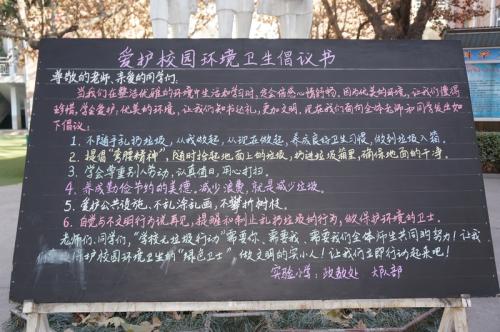 爱护校园环境卫生倡议书
尊敬的老师、亲爱的同学们:
当我们在整洁优雅的环境中生活和学习时,定会倍感心情舒畅。因为优美的环境,让我们懂得
珍惜,学会爱护,优美的环境,让我们知书达礼,更加文明。现在我们面向全体老师和同学发出如
下倡议:
1、不随手乱扔垃圾,从我做起,从现在做起,养成良好卫生习惯,做到垃圾入箱。
2、提倡“弯腰精神”,随时拾起地面上的垃圾,扔进垃圾箱里,确保地面的干净。
3、学会尊重别人劳动,认真值日,用心打扫。
4、养成勤俭节约的美德,减少浪费,就是减少垃圾。
5、爱护公共设施、不乱涂乱画,不攀折树枝。
6、自觉与不文明行为说再见,提醒和制止乱扔垃圾的行为,做保护环境的卫士。
老师们、同学们,“学校无垃圾行动”需要你、需要我、需要我们全体师生共同的努力!让我
保护校园环境卫生的“绿色卫士”,做文明的实小人!让我们立即行动起来吧!
实验小学:政教处 大队部